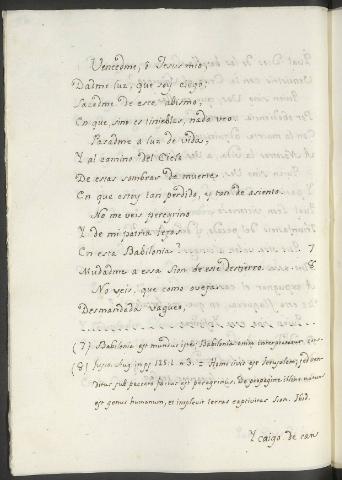 Vencedme, ò Jesus mio,
Dadme luz, que soy ciego;
Sacadme de este abismo,
En que, sino es tinieblas, nada veo.
Pasadme a luz de vida,
Y al camino del Cielo
De estas sombras de muerte,
En que estoy tan perdido, y tan de asiento.
No me veis peregrino
Y de mi patria lejos
En esta Babilonia? 7
Mudadme a essa Sion de este destierro. 8
No veis, que como oveja
Desmandada vagueo,
(7) Babilonia est mundus iste: Babilonia enim interpretatur, con-
(8) August. in ps. 125. n. 3. = Homi est Jerusalem; sed ven-
ditus sub peccato factus est peregrinus. De progenie illius natum
est genus humanum, et implevit terras captivitas Sion. Ibid.
Y caigo de can